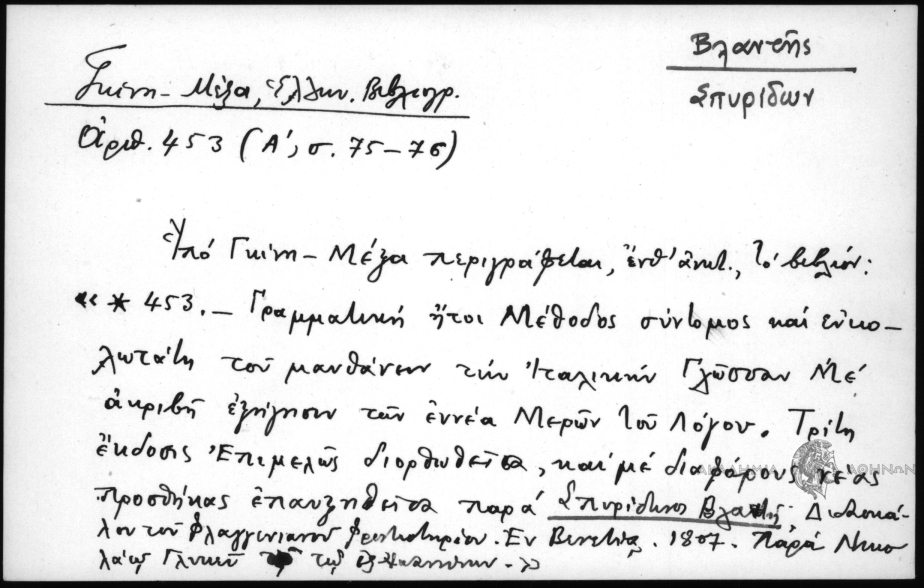 Βλαντῆς
Σπυρίδων
Γκίνη – Μέξα, Ἑλλην. Βιβλιογρ.
ἀριθ. 453 (Α΄, σ. 75–76)
Ὑπό Γκίνη – Μέξα περιγράφεται, ἔνθ' ἀνωτ., τό βιβλίον:
«* 453. – Γραμματική ἤτοι Μέθοδος σύντομος καί εὐκο-
λωτάτη τοῦ μανθάνειν τήν Ἰταλικήν Γλῶσσαν Μέ
ἀκριβῆ ἐξήγησιν τῶν ἐννέα Μερῶν τοῦ Λόγου. Τρίτη
ἔκδοσις Ἐπιμελῶς διορθωθεῖσα, καί μέ διαφόρους νέας
ΑΚΑΔΗΜΙΑ ΑΘΗΝΩΝ
προσθήκας ἐπαυξηθεῖσα παρά Σπυρίδωνος Βλαντῆ, Διδασκά-
λου τοῦ Φλαγγινιανοῦ Φροντιστηρίου. Ἐν Βενετίᾳ. 1807. Παρά Νικο
λάῳ Γλυκεῖ τῷ ἐξ Ἰωαννίνων. –»